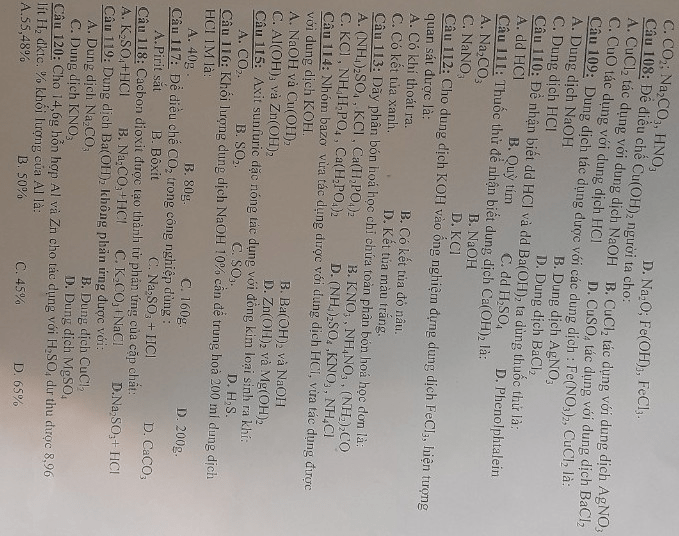 C. CO₂; Na₂CO₃, HNO₃ D. Na₂O; Fe(OH)₃, FeCl₃.
Câu 108: Để điều chế Cu(OH)₂ người ta cho:
A. CuCl₂ tác dụng với dung dịch NaOH B. CuCl₂ tác dụng với dung dịch AgNO₃
C. CuO tác dụng với dung dịch HCl D. CuSO₄ tác dụng với dung dịch BaCl₂
Câu 109: Dung dịch tác dụng được với các dung dịch : Fe(NO₃)₂, CuCl₂ là:
A. Dung dịch NaOH B. Dung dịch AgNO₃
C. Dung dịch HCl D. Dung dịch BaCl₂
Câu 110: Để nhận biết dd HCl và dd Ba(OH)₂ ta dùng thuốc thử là:
A. dd HCl B. Quỳ tím C. dd H₂SO₄ D. Phenolphtalein
Câu 111: Thuốc thử để nhận biết dung dịch Ca(OH)₂ là:
A. Na₂CO₃ B. NaOH
C. NaNO₃ D. KCl
Câu 112: Cho dung dịch KOH vào ống nghiệm đựng dung dịch FeCl₃, hiện tượng
quan sát được là:
A. Có khí thoát ra. B. Có kết tủa đỏ nâu.
C. Có kết tủa xanh. D. Kết tủa màu trắng.
Câu 113: Dãy phân bón hoá học chỉ chứa toàn phân bón hoá học đơn là:
A. (NH₄)₂SO₄ , KCl , Ca(H₂PO₄)₂ B. KNO₃ , NH₄NO₃ , (NH₂)₂CO
C. KCl , NH₄H₂PO₄ , Ca(H₂PO₄)₂ D. (NH₄)₂SO₄ ,KNO₃ , NH₄Cl
Câu 114: Nhóm bazơ vừa tác dụng được với dung dịch HCl, vừa tác dụng được
với dung dịch KOH.
A. NaOH và Cu(OH)₂ B. Ba(OH)₂ và NaOH
C. Al(OH)₃ và Zn(OH)₂ D. Zn(OH)₂ và Mg(OH)₂
Câu 115: Axit sunfuric đặc nóng tác dụng với đồng kim loại sinh ra khí:
A. CO₂. B. SO₂. C. SO₃. D. H₂S.
Câu 116: Khối lượng dung dịch NaOH 10% cần để trung hoà 200 ml dung dịch
HCl 1M là:
A. 40g . B. 80g. C. 160g D. 200g.
Câu 117: Để điều chế CO₂ trong công nghiệp dùng :
A.Pirit sắt B. Bôxit C. Na₂SO₃ + HCl D. CaCO₃
Câu 118: Cacbon dioxit được tạo thành từ phản ứng của cặp chất:
A. K₂SO₄+HCl B. Na₂CO₃+HCl C. K₂CO₃+NaCl D.Na₂SO₃+ HCl
Câu 119: Dung dịch Ba(OH)₂ không phản ứng được với:
A. Dung dịch Na₂CO₃ B. Dung dịch CuCl₂
C. Dung dịch KNO₃ D. Dung dịch MgSO₄
Câu 120: Cho 14,6g hỗn hợp Al và Zn cho tác dụng với H₂SO₄ dư thu được 8,96
lít H₂ đktc. % khối lượng của Al là:
A.55,48% B. 50% C. 45% D. 65%